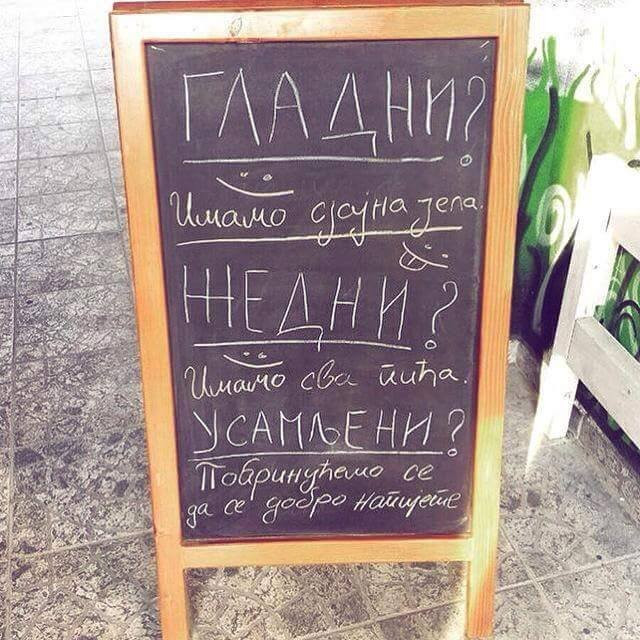 ГЛАДНИ?
Имамо сјајна јела.
ЖЕДНИ?
Имамо сва пића.
УСАМЉЕНИ?
Побринућемо се
да се добро напијете